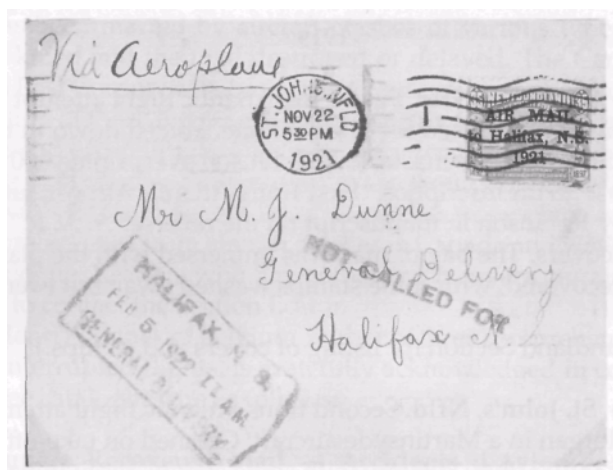 Via Aeroplane
ST. JOHN'S NFLD
NOV 22
5 30 PM
1921
NEWFOUNDLAND
AIR MAIL
to Halifax, N.S.
1921
Mr M. J. Dunne
General Delivery
NOT CALLED FOR
Halifax
HALIFAX N. S.
FEB 5 1922 11 AM
GENERAL DELIVERY